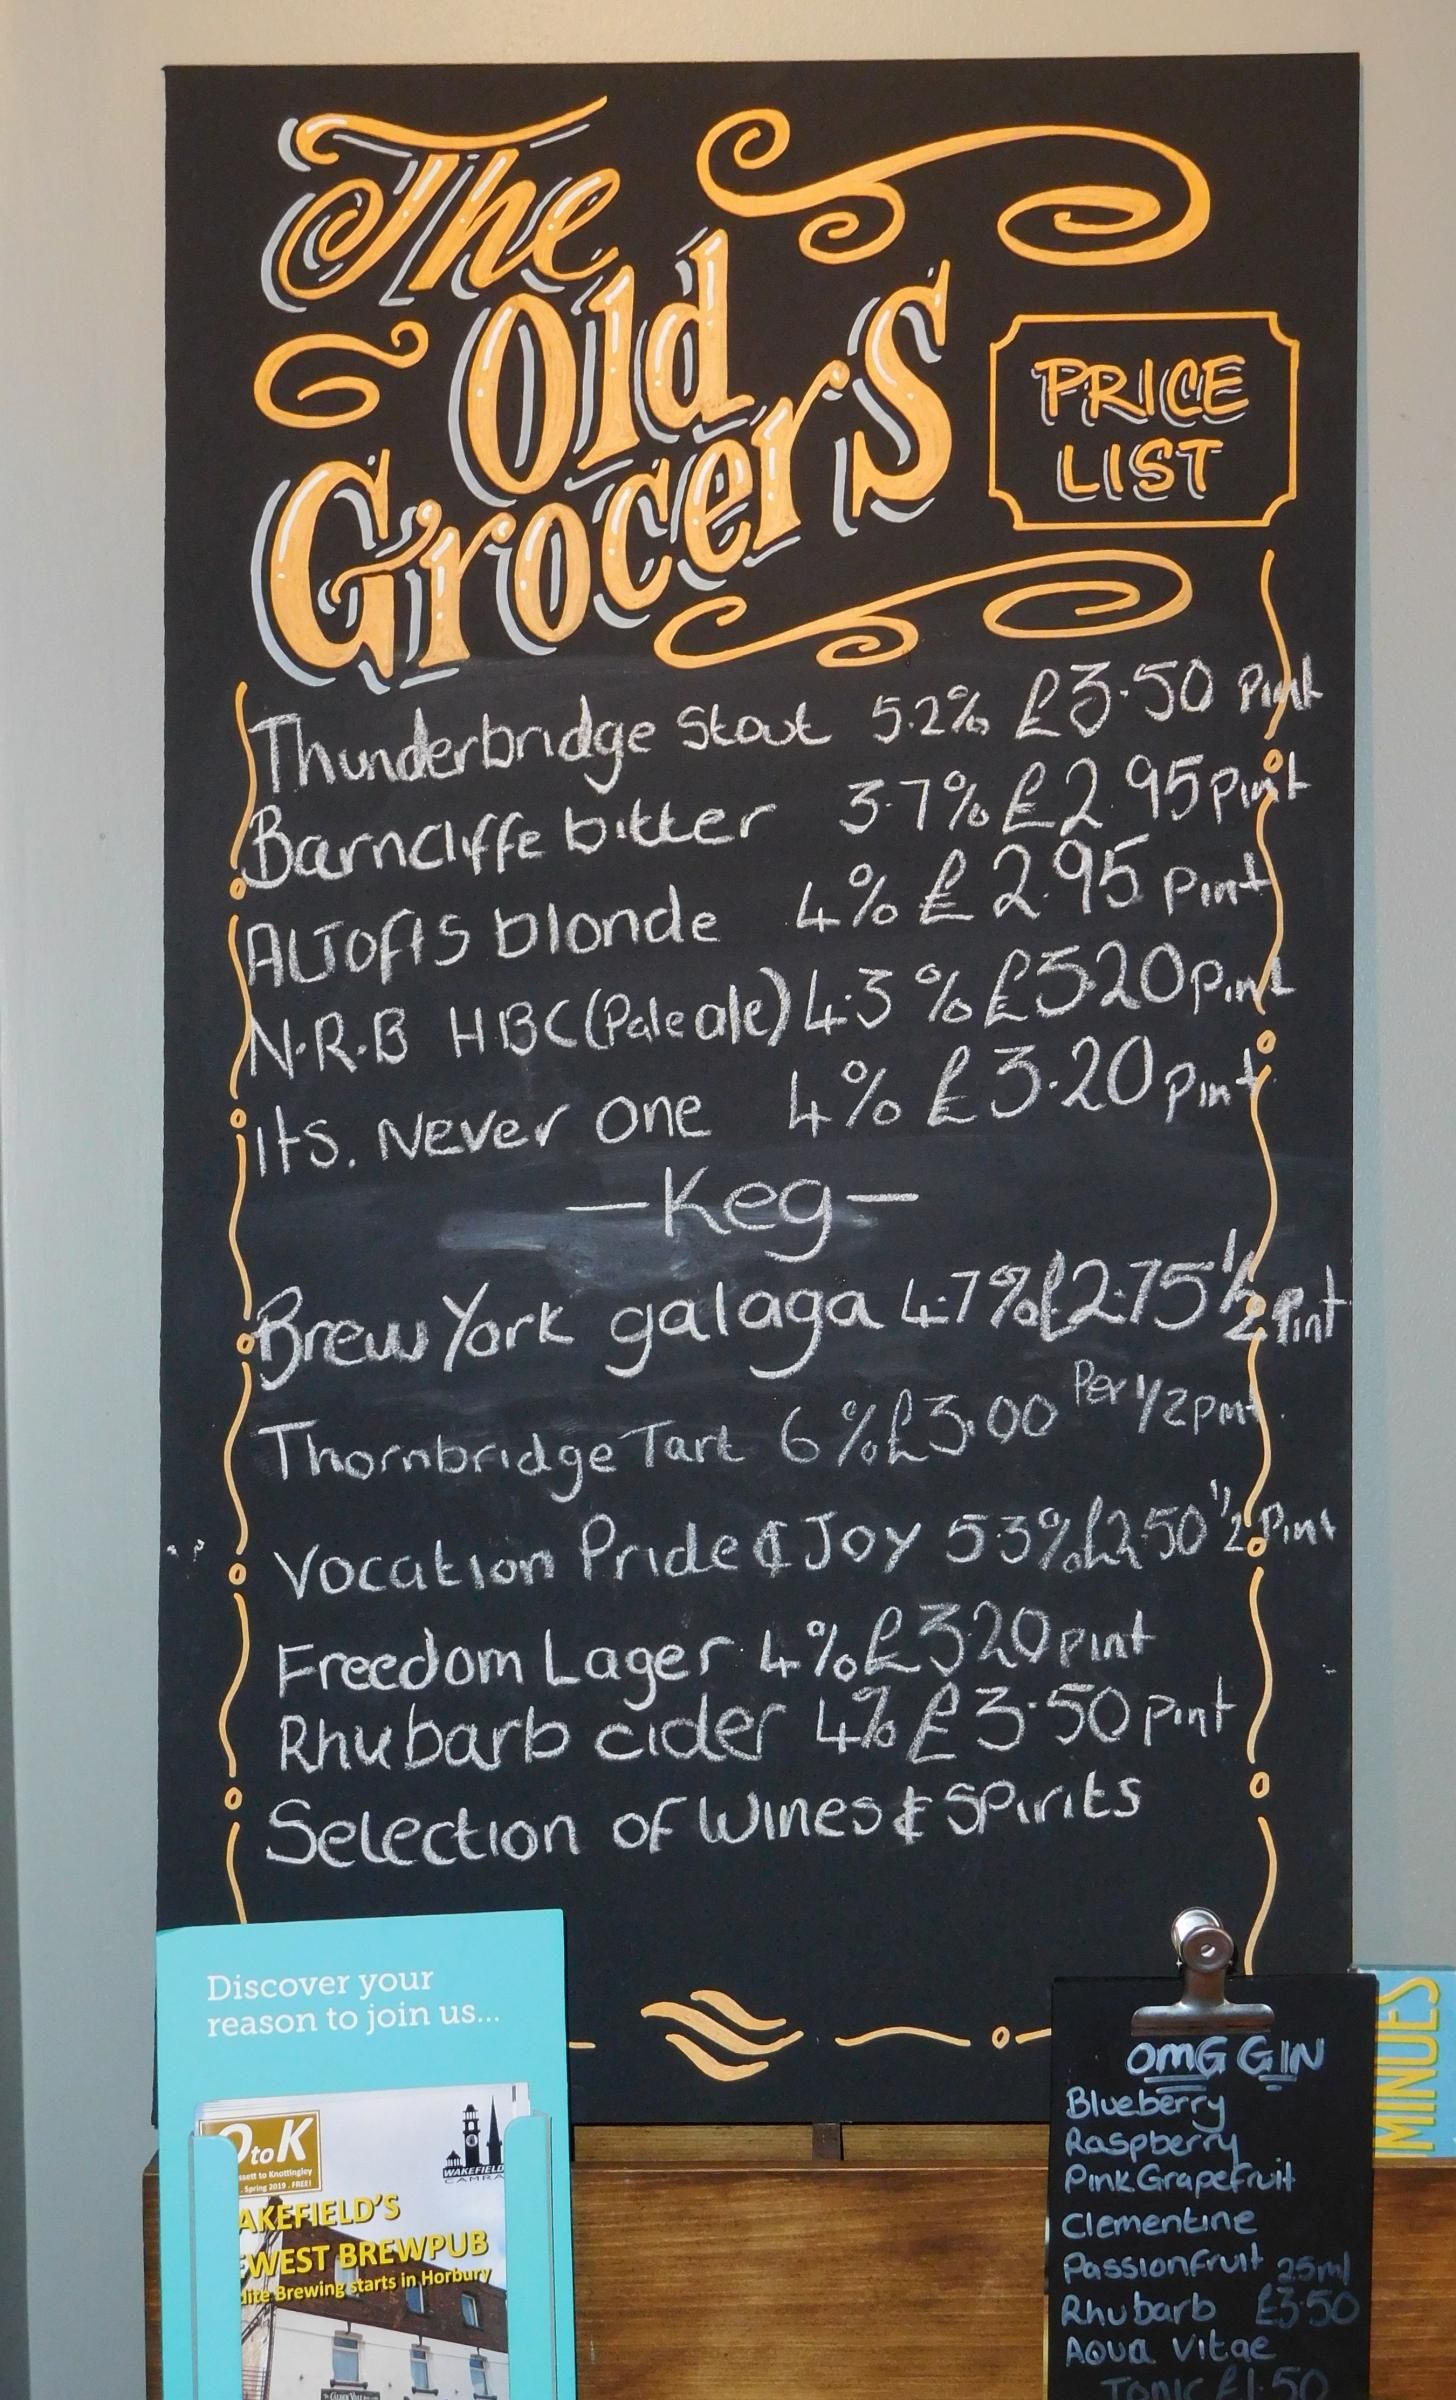 The
Old
Grocers
PRICE
LIST
Thunderbridge Stout 5.2% £3.50 Pint
Barncliffe bitter 3.7% £2.95 pint
ALTOFTS blonde 4% £2.95 Pint
N.R.B H.B.C (Pale ale) 4.3% £3.20 Pint
Its. Never one 4% £3.20 Pint
—Keg—
Brew York galaga 4.7% £2.75 ½ Pint
Thornbridge Tart 6% £3.00 Per 1/2 pint
Vocation Pride & Joy 5.3% £2.50 ½ Pint
Freedom Lager 4% £3.20 pint
Rhubarb cider 4% £3.50 pint
Selection of Wines & Spirits
Discover your
reason to join us...
OtoK
ssett to Knottingley
Spring 2019 . FREE!
WAKEFIELD
CAMRA
AKEFIELD'S
EWEST BREWPUB
dite Brewing starts in Horbury
MINUES
OMG GIN
Blueberry
Raspberry
Pink Grapefruit
Clementine
Passionfruit 25ml
Rhubarb £3.50
Aqua Vitae
Tonic £1.50